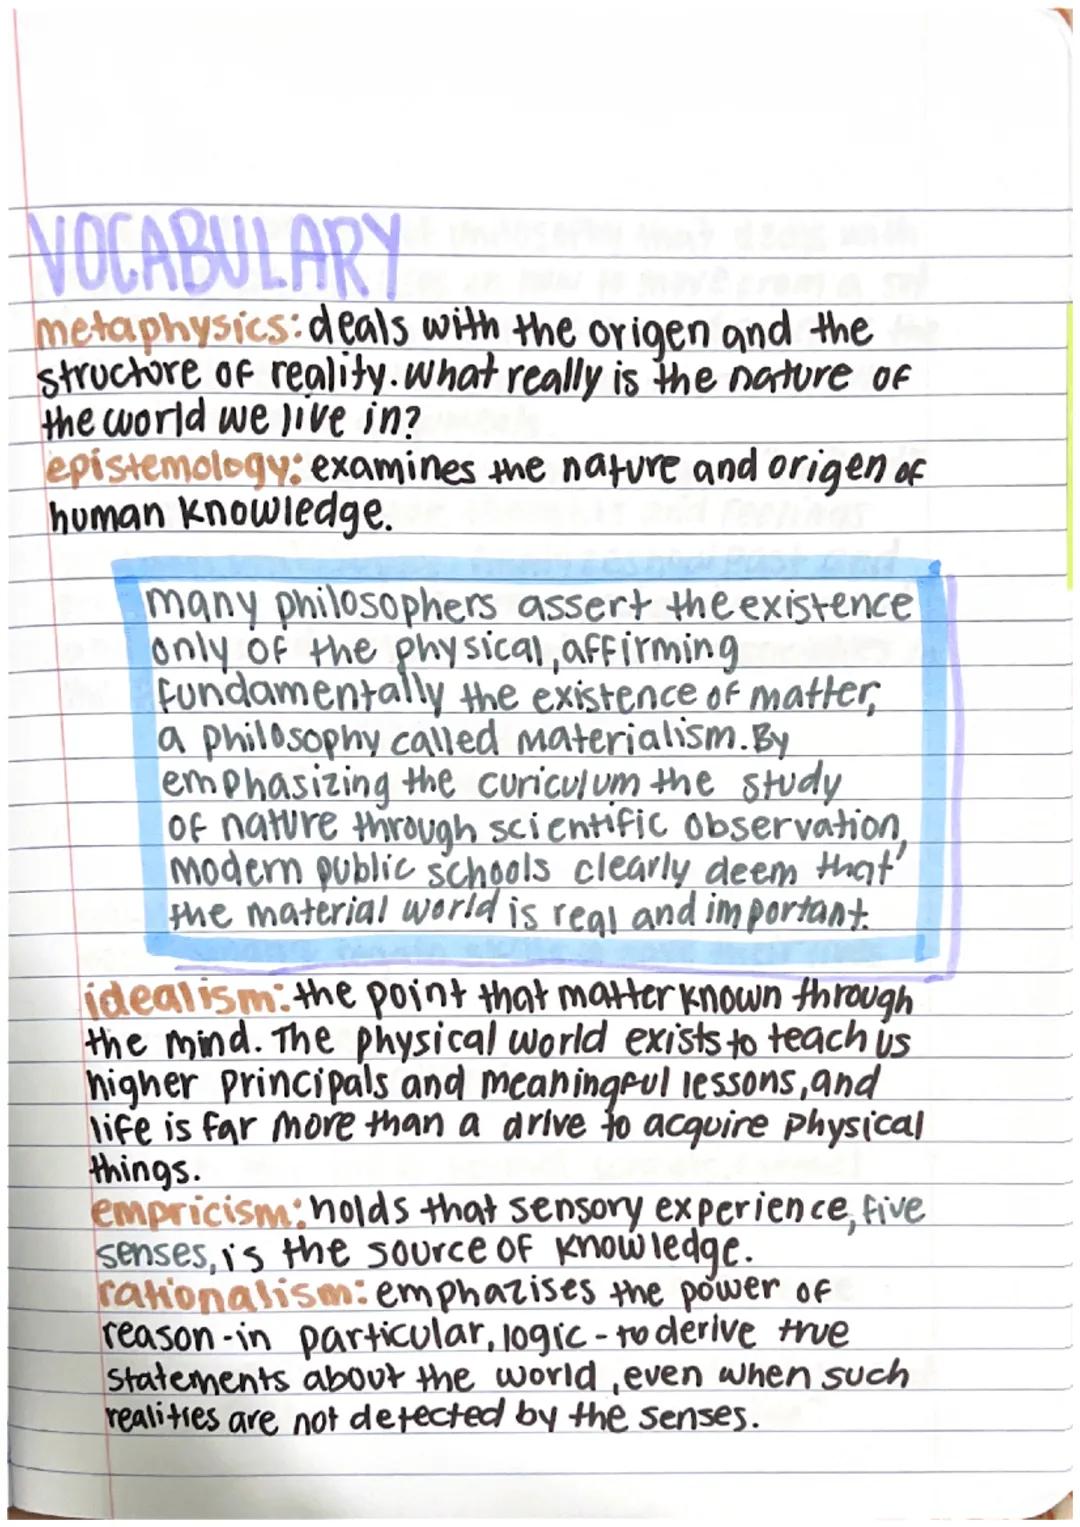 VOCABULARY
metaphysics: deals with the origen and the
structore of reality. What really is the nature of
the world we live in?
epistemology: examines the nature and origen of
human knowledge.
many philosophers assert the existence
only of the physical, affirming
fundamentally the existence of matter,
a philosophy called materialism. By
emphasizing the curiculum the study
of nature through scientific observation,
modern public schools clearly deem that
the material world is real and important.
idealism: the point that matter known through
the mind. The physical world exists to teach us
higher principals and meaningful lessons, and
life is far more than a drive to acquire physical
things.
empricism: holds that sensory experience, five
senses, is the source of knowledge.
rationalism: emphazises the power of
reason - in particular, logic - to derive true
statements about the world, even when such
realities are not detected by the senses.